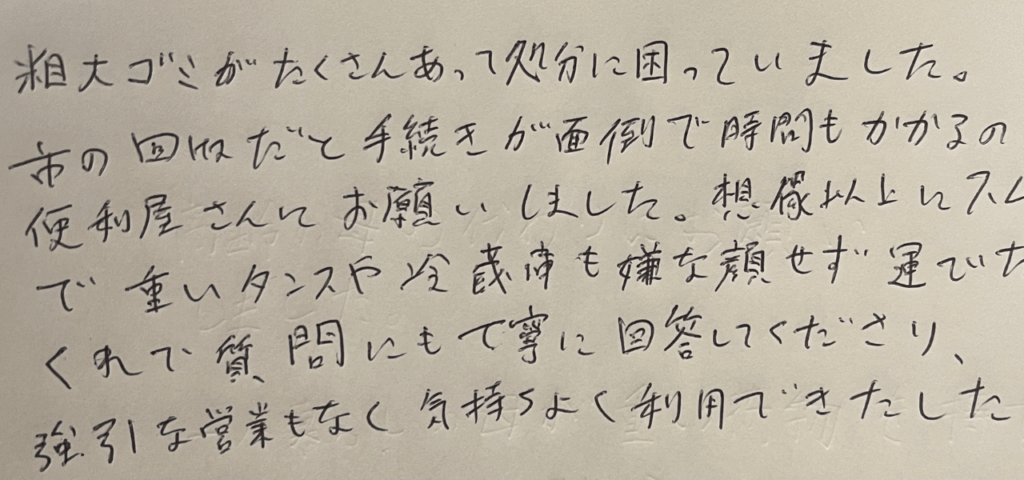 粗大ゴミがたくさんあって処分に困っていました。
市の回収だと手続きが面倒で時間もかかるの
便利屋さんにお願いしました。想像以上にスム
で重いタンスや冷蔵庫も嫌な顔せず運でた
くれて質問にもて寧に回答してくださり、
強引な営業もなく気持ちよく利用できたした